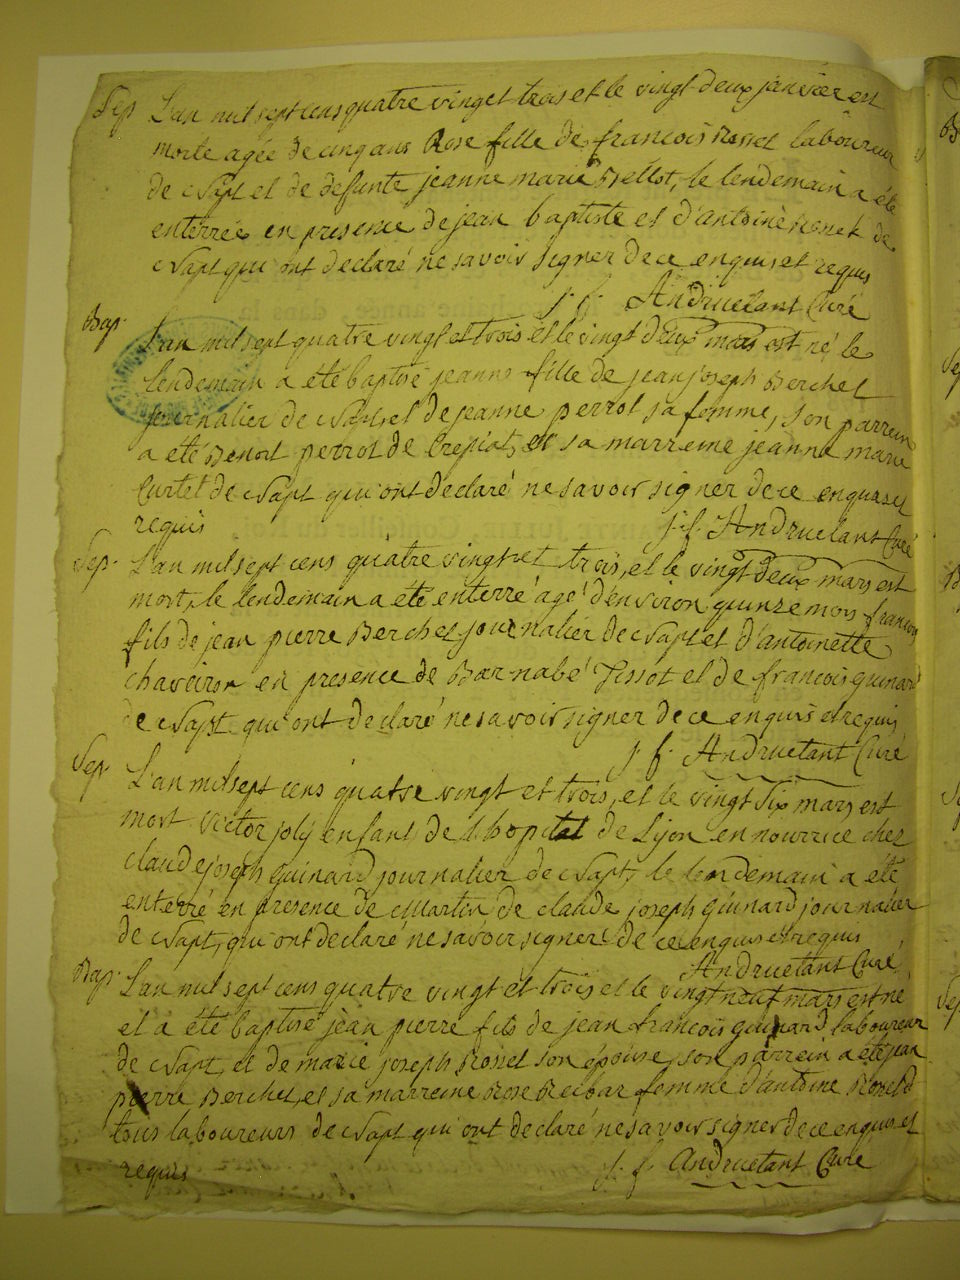 Sep L'an mil sept cens quatre vingt trois et le vingt deux janvier est
morte agée de cinq ans Rose fille de françois Rosset laboureur
de Napt et de defunte jeanne marie Bellot, le lendemain a été
enterrée en presence de jean baptiste et d'Antoine de
Napt qui ont declaré ne savoir signer de ce enquis et requis
j. f. Andruetant Curé
Bap. L'an mil sept quatre vingt et trois et le vingt deux mars est né, le
lendemain a été baptisé jeanne fille de jean joseph Berchet
journalier de Napt et de jeanne perrot sa femme, son parrein
a été Benoit perrot de et sa marreine jeanne marie
Curtet de Napt qui ont declaré ne savoir signer de ce enquis et
requis j. f. Andruetant Curé
Sep. L'an mil sept cens quatre vingt et trois, et le vingt deux mars est
mort, le lendemain a été enterré agé d'environ quinze mois françois
fils de jean pierre Berchet journalier de Napt et d'antoinette
en presence de Barnabé Tissot et de françois guinard
de Napt qui ont declaré ne savoir signer de ce enquis et requis
j f. Andruetant Curé
Sep. L'an mil sept cens quatre vingt et trois, et le vingt six mars est
mort victor joly enfant de l'hopital de Lyon en nourrice chez
claude joseph guinard journalier de Napt, le lendemain a été
enterré en presence de Martin de claude joseph guinard journalier
de Napt, qui ont declaré ne savoir signer de ce enquis et requis
Andruetant Curé
Bap. L'an mil sept cens quatre vingt et trois et le vingt neuf mars est né
et a été baptisé jean pierre fils de jean françois guinard laboureur
de Napt, et de marie joseph Rosset son épouse, son parrein a été jean
pierre Berchet, et sa marreine Rose femme d'antoine Rosset
tous laboureurs de Napt qui ont declaré ne savoir signer de ce enquis et
requis j. f. Andruetant Curé